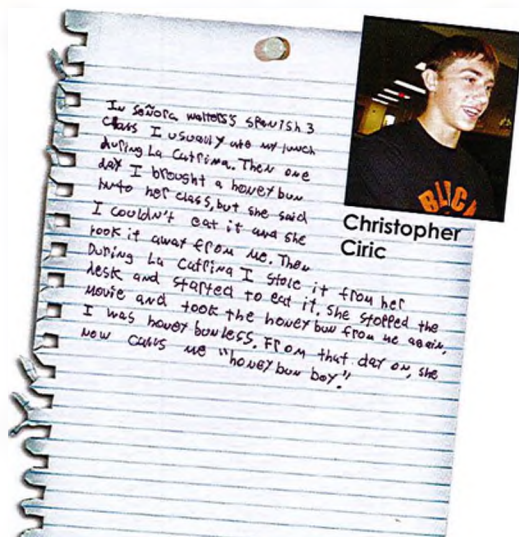 In señora Walters's spanish 3
class I usually ate my lunch
during La Catrina. Then one
day I brought a honey bun
into her class, but she said
I couldn't eat it and she
took it away from me. Then
During La Catrina I stole it from her
desk and started to eat it. She stopped the
movie and took the honey bun from me again,
I was honey bunless. From that day on, she
now calls me "honey bun boy."
BLACK
Christopher
Ciric